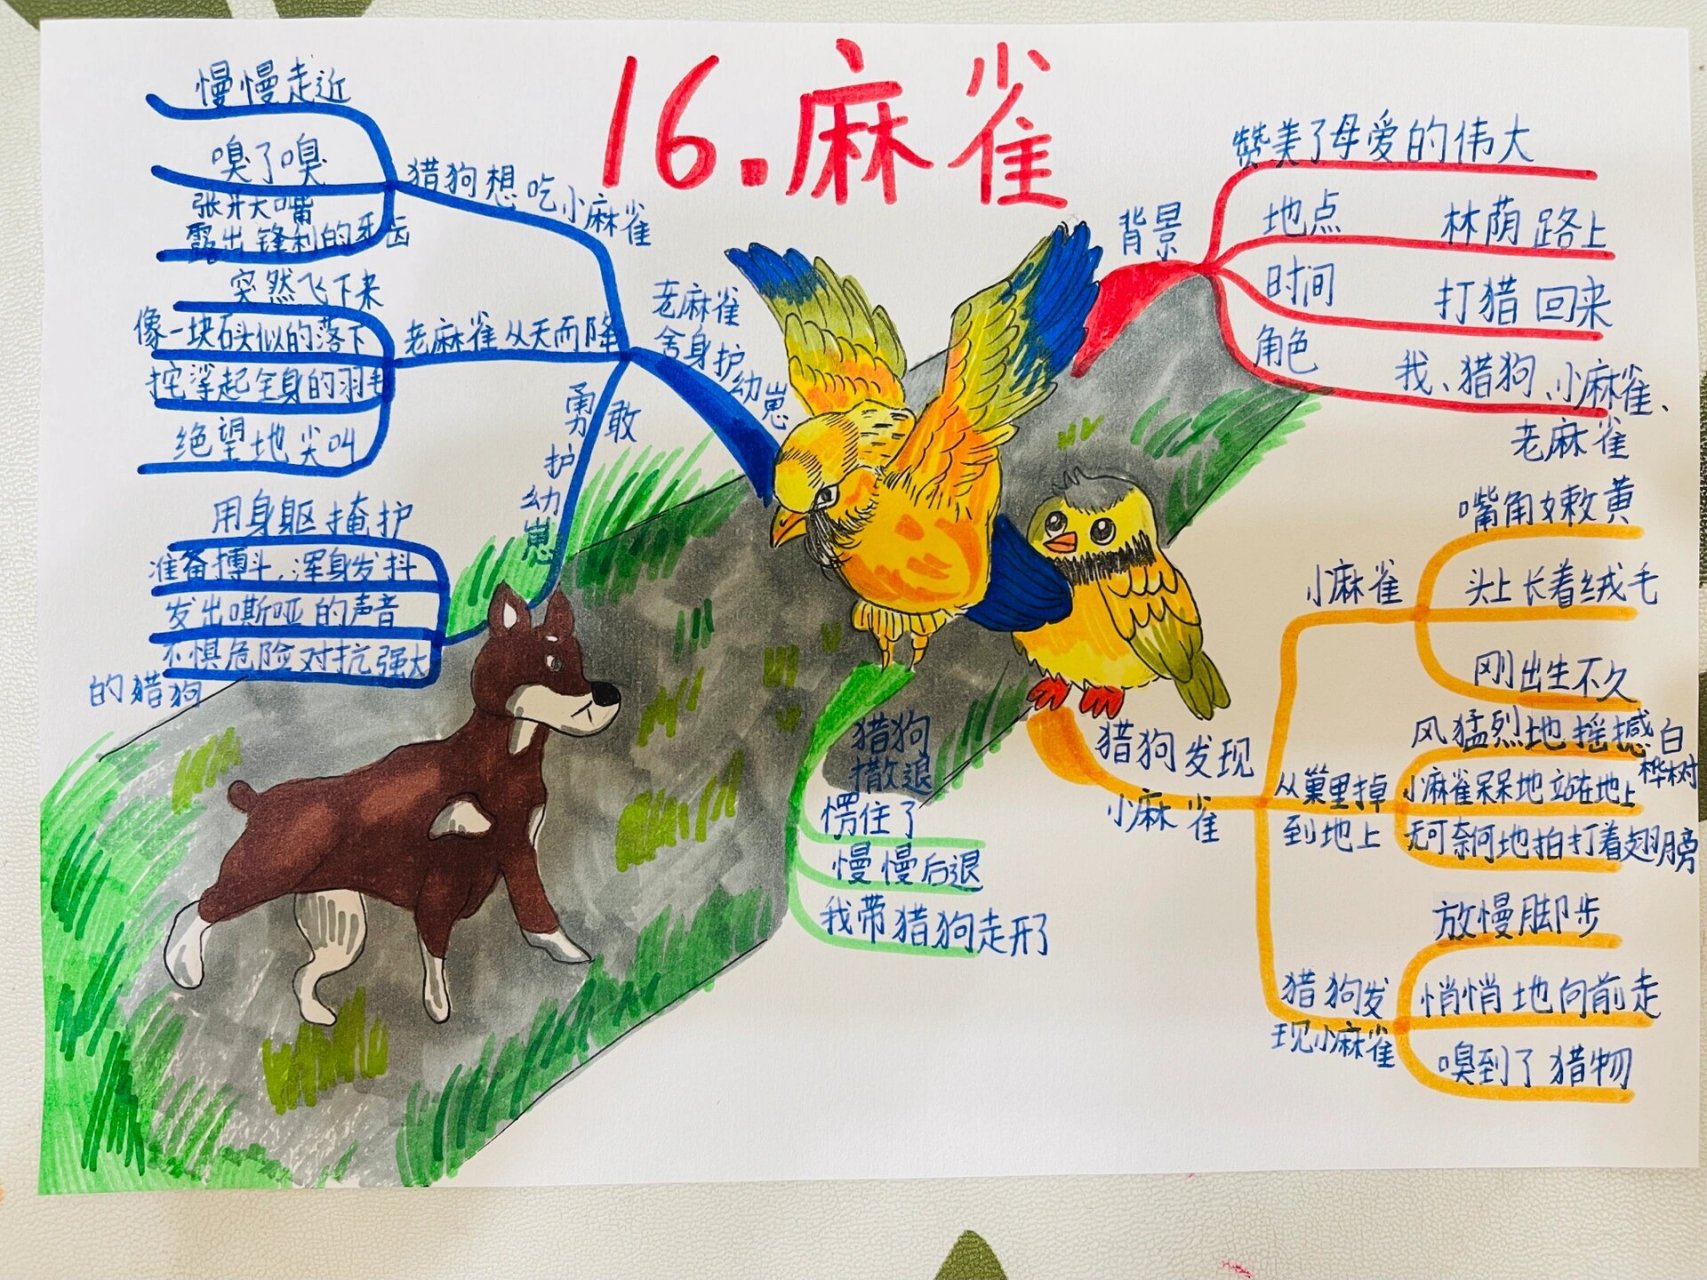 16.麻雀
背景
赞美了母爱的伟大
地点 林荫路上
时间 打猎回来
角色 我、猎狗、小麻雀、
老麻雀
猎狗发现
小麻雀
小麻雀
嘴角嫩黄
头上长着绒毛
刚出生不久
从巢里掉
到地上
风猛烈地摇撼白
桦树
小麻雀呆呆地站在地上
无可奈何地拍打着翅膀
猎狗发
现小麻雀
放慢脚步
悄悄地向前走
嗅到了猎物
老麻雀
舍身护
幼崽
猎狗想吃小麻雀
慢慢走近
嗅了嗅
张开大嘴
露出锋利的牙齿
老麻雀从天而降
突然飞下来
像一块石头似的落下
挓挲起全身的羽毛
绝望地尖叫
勇敢
护
幼
崽
用身躯掩护
准备搏斗、浑身发抖
发出嘶哑的声音
不惧危险对抗强大
的猎狗
猎狗
撤退
愣住了
慢慢后退
我带猎狗走开了